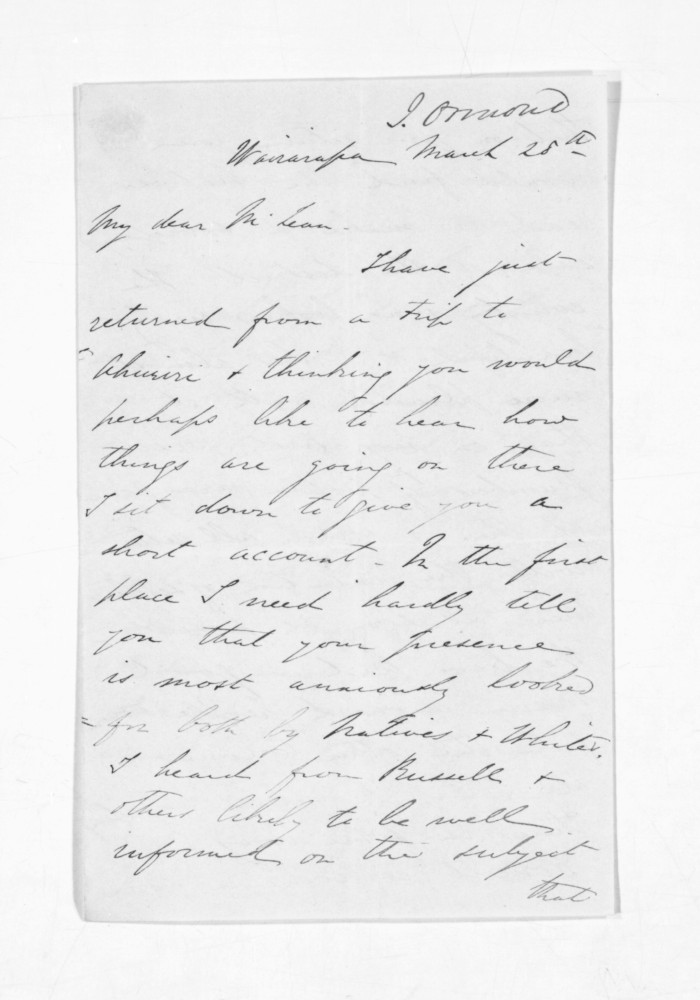 J. Ormond
Wairarapa March 28th
My dear McLean.
I have just
returned from a trip to
Ahuriri & thinking you would
perhaps like to hear how
things are going on there
I sit down to give you a
short account - In the first
place I need hardly tell
you that your presence
is most anxiously looked
= for both by Natives & Whites.
I heard from Russell &
others likely to be well
informed on the subject
that